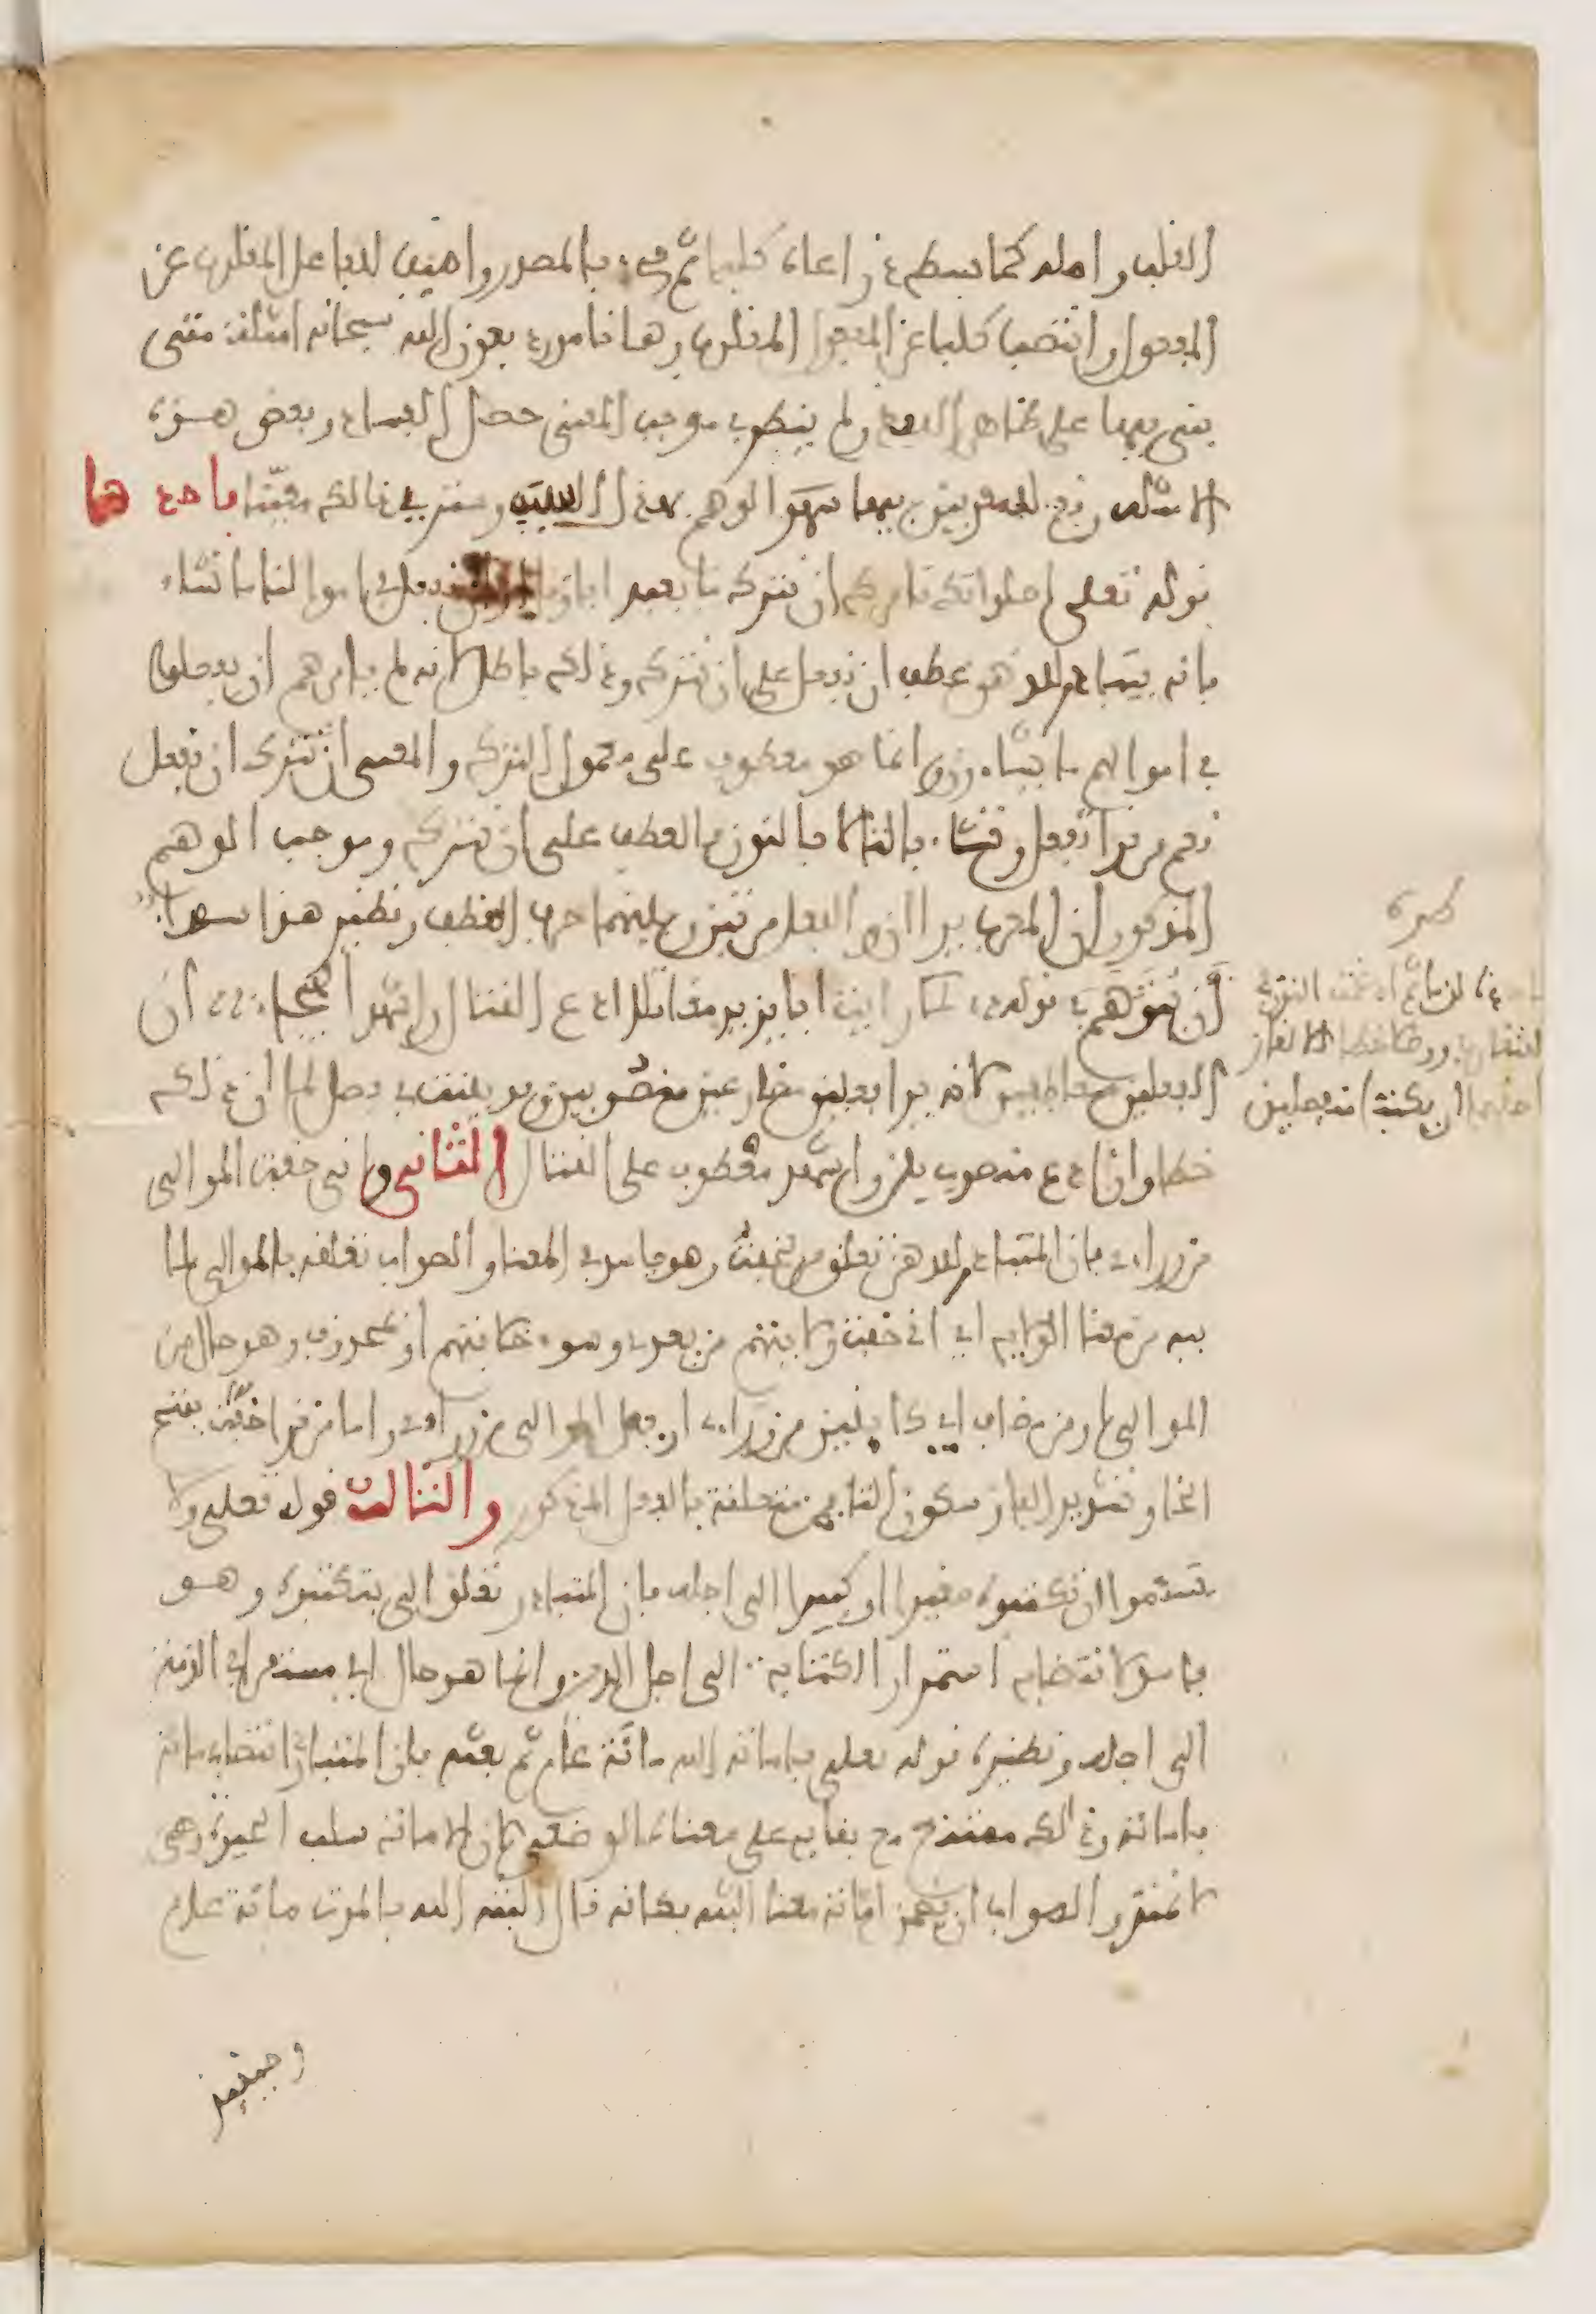 القلب واصله كما بسطه في راعاه كلبا ثم جيء بالمصدر واضيف للفاعل المقلوب عن
المفعول وانتصب كلبا عن المفعول المقلوب وها انا مورد بعون الله سبحانه امثلة متى
بني فيها على ظاهر اللفظ ولم ينظر في موجب المعنى حصل الفساد وبعض هذه
الامثلة وقع للمعربين فيها الوهم بهذا السبب وسترى ذلك معينا فاحدها
قوله تعلى اصلواتك تامرك ان نترك ما يعبد اباؤنا او ان نفعل في اموالنا ما نشاء
فانه يتبادر للذهن عطف ان نفعل على ان نترك وذلك باطل لانه لم يامرهم ان يفعلوا
في اموالهم ما يشاءون وانما هو معطوف على معمول الترك والمعنى ان نترك ان نفعل
نعم من قرا تفعل وتشاء بالتا لا بالنون فالعطف على ان نترك وموجب الوهم
المذكور ان المعرب يرا ان والفعل مرتين وبينهما حرف العطف ونظير هذا سواء
ان يتوهم في قوله لما رايت ابا يزيد مقاتلا ادع القتال واشهد الهيجاء ان
الفعلين متعاطفين لانه يرا فعلين مضارعين منصوبين وقد بينت في فصل لما ان ذلك
خطا وان ادع منصوب بلن واشهد معطوف على القتال الثاني واني خفت الموالي
من وراءي فان المتبادر للذهن تعلق من بخفت وهو فاسد في المعنا والصواب تعلقه بالموالي لما
فيه من معنا الولاية اي اني خفت ولايتهم من بعدي وسوء خلافتهم او بمحذوف وهو حال من
الموالي او من مضاف اي كاينين من وراءي او فعل الموالي من وراءي واما من قرا خفت بفتح
الخا وتشديد الفا وسكون التا فمن متعلقة بالفعل المذكور والثالث قوله تعلى ولا
تسئموا ان تكتبوه صغيرا او كبيرا الى اجله فان المتبادر تعلق الى بتكتبوه وهو
فاسد لاقتضايه استمرار الكتابة الى اجل الدين وانما هو حال اي مستقرا في الذمة
الى اجله ونظيره قوله تعلى فاماته الله مائة عام ثم بعثه فان المتبادر انتصاب مائة
باماته وذلك ممتنع مع بقايه على معناه الوضعي لان الاماته سلب الحيوة وهي
لا تمتد والصواب ان يضمن اماته معنا البثه فكانه قال البثه الله بالموت مائة عام
وحينئذ